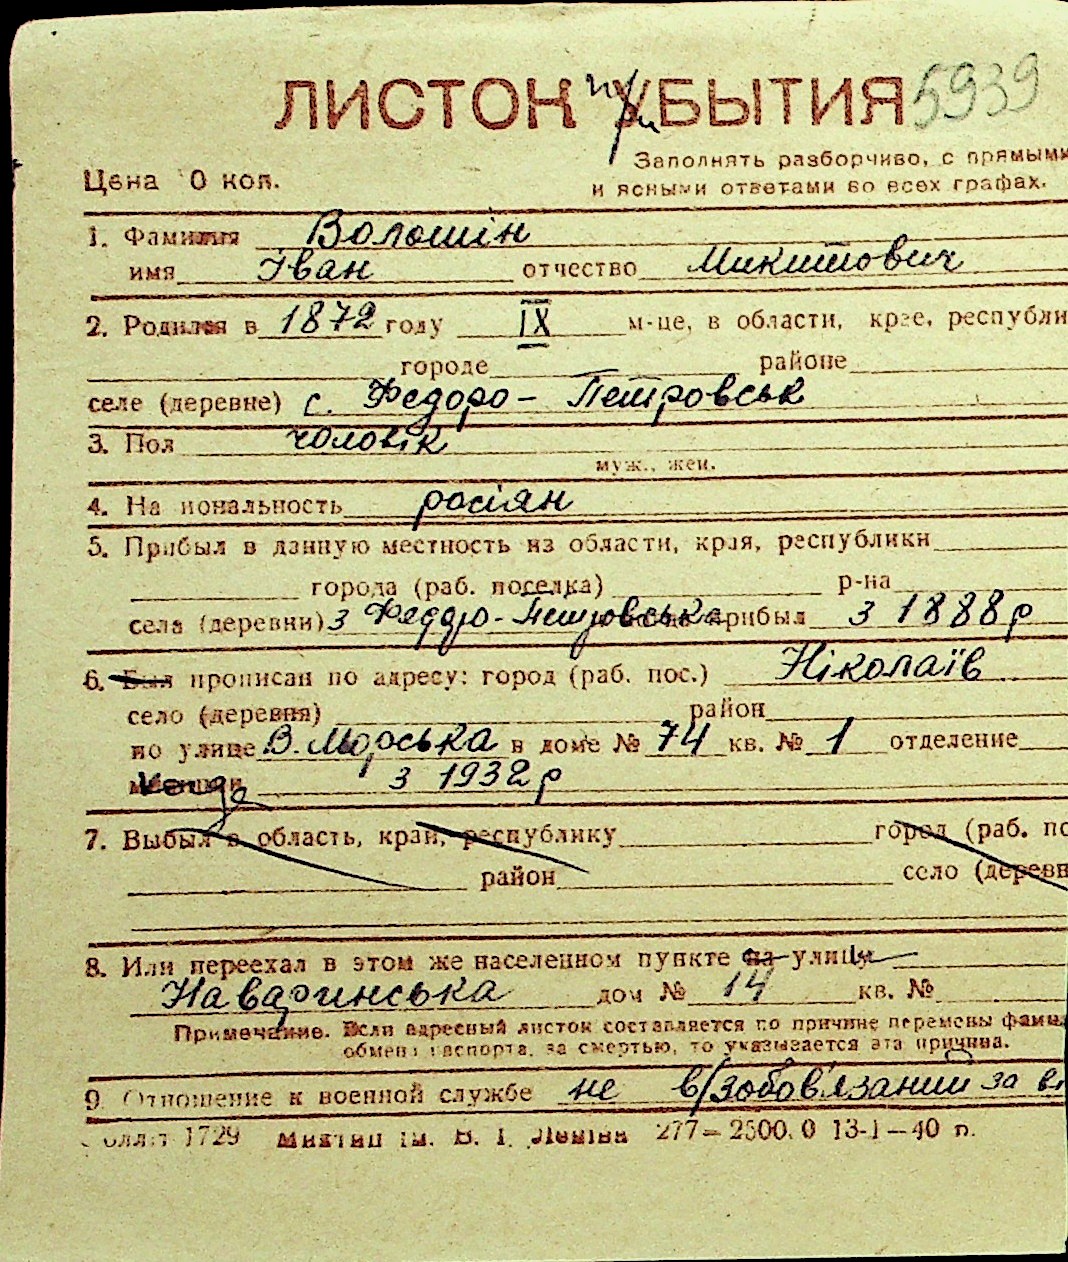 ЛИСТОК при УБЫТИЯ 5939
Заполнять разборчиво, с прямыми
Цена 0 коп. и ясными ответами во всех графах.
1. Фамилия Волошін
имя Іван отчество Микитович
2. Родился в 1872 году IX м-це, в области, крае, республи
городе районе
селе (деревне) с. Федоро-Петровськ
3. Пол чоловік
муж., жен.
4. На иональность росіян
5. Прибыл в данную местность из области, края, республики
города (раб. поселка) р-на
села (деревни) з Феддро-Петровська прибыл з 1888 р
6. Был прописан по адресу: город (раб. пос.) Ніколаїв
село (деревня) район
по улице В. Морська в доме № 74 кв. № 1 отделение
з 1932 р
7. Выбыл в область, край, республику город (раб. по
район село (деревн
8. Или переехал в этом же населенном пункте на улицу
Наваринська дом № 14 кв. №
Примечание. Если адресный листок составляется по причине перемены фами
обмен паспорта, за смертью, то указывается эта причина.
9 Отношение к военной службе не в/зобов'язаний за ві
1729 Миктип ім. В. І. Леніна 277–2500.0 13-1–40 п.